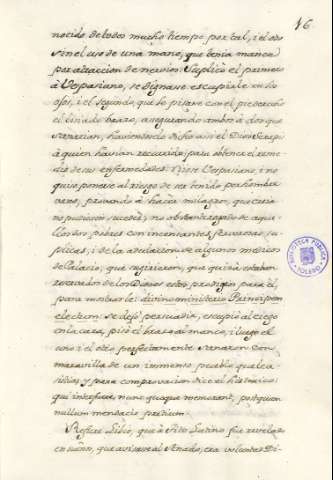 16.
nocido de todos mucho tiempo por tal, i el otro
sin el uso de una mano, que tenia manca
por atraccion de nervios. Suplicó el primero
à Vespasiano, se dignase escupirle en los
ojos, i el segundo, que le pisase con el pie derecho
el brazo, asegurando ambos à dos que
sanarian, haviendoselo dicho asi el Dios Serapis
à quien havian recurrido, para obtener el reme
dio de sus enfermedades. Vespasiano, i no
quiso ponerse al riesgo de ser tenido por hombre
vano, provando à hacer milagros, que creia
no pudiesen suceder; no obstante rogado de aque
llos dos pobres con incesantes, fervorosas su
plicas, i de la adulacion de algunos medicos
de Palacio, que sugirieron, que quizá estaban
reservados de los Dioses estos prodigios para él,
para mostrarle: divino ministerio Principem
electum. Se dejó persuadir, escupió al ciego
en la cara, pisó el brazo al manco, i luego el
uno i el otro perfectamente sanaron con
maravilla de un inmenso pueblo que le a
sistia; y para comprovacion dice el historico:
qui interfuere, nunc quoque memorant, postquam
nullum mendacio pretium.
Refiere Livio, que à Tito Latino fue revelado
en sueño, que avisase al Senado, era voluntad Di-
BIBLIOTECA PUBLICA
TOLEDO